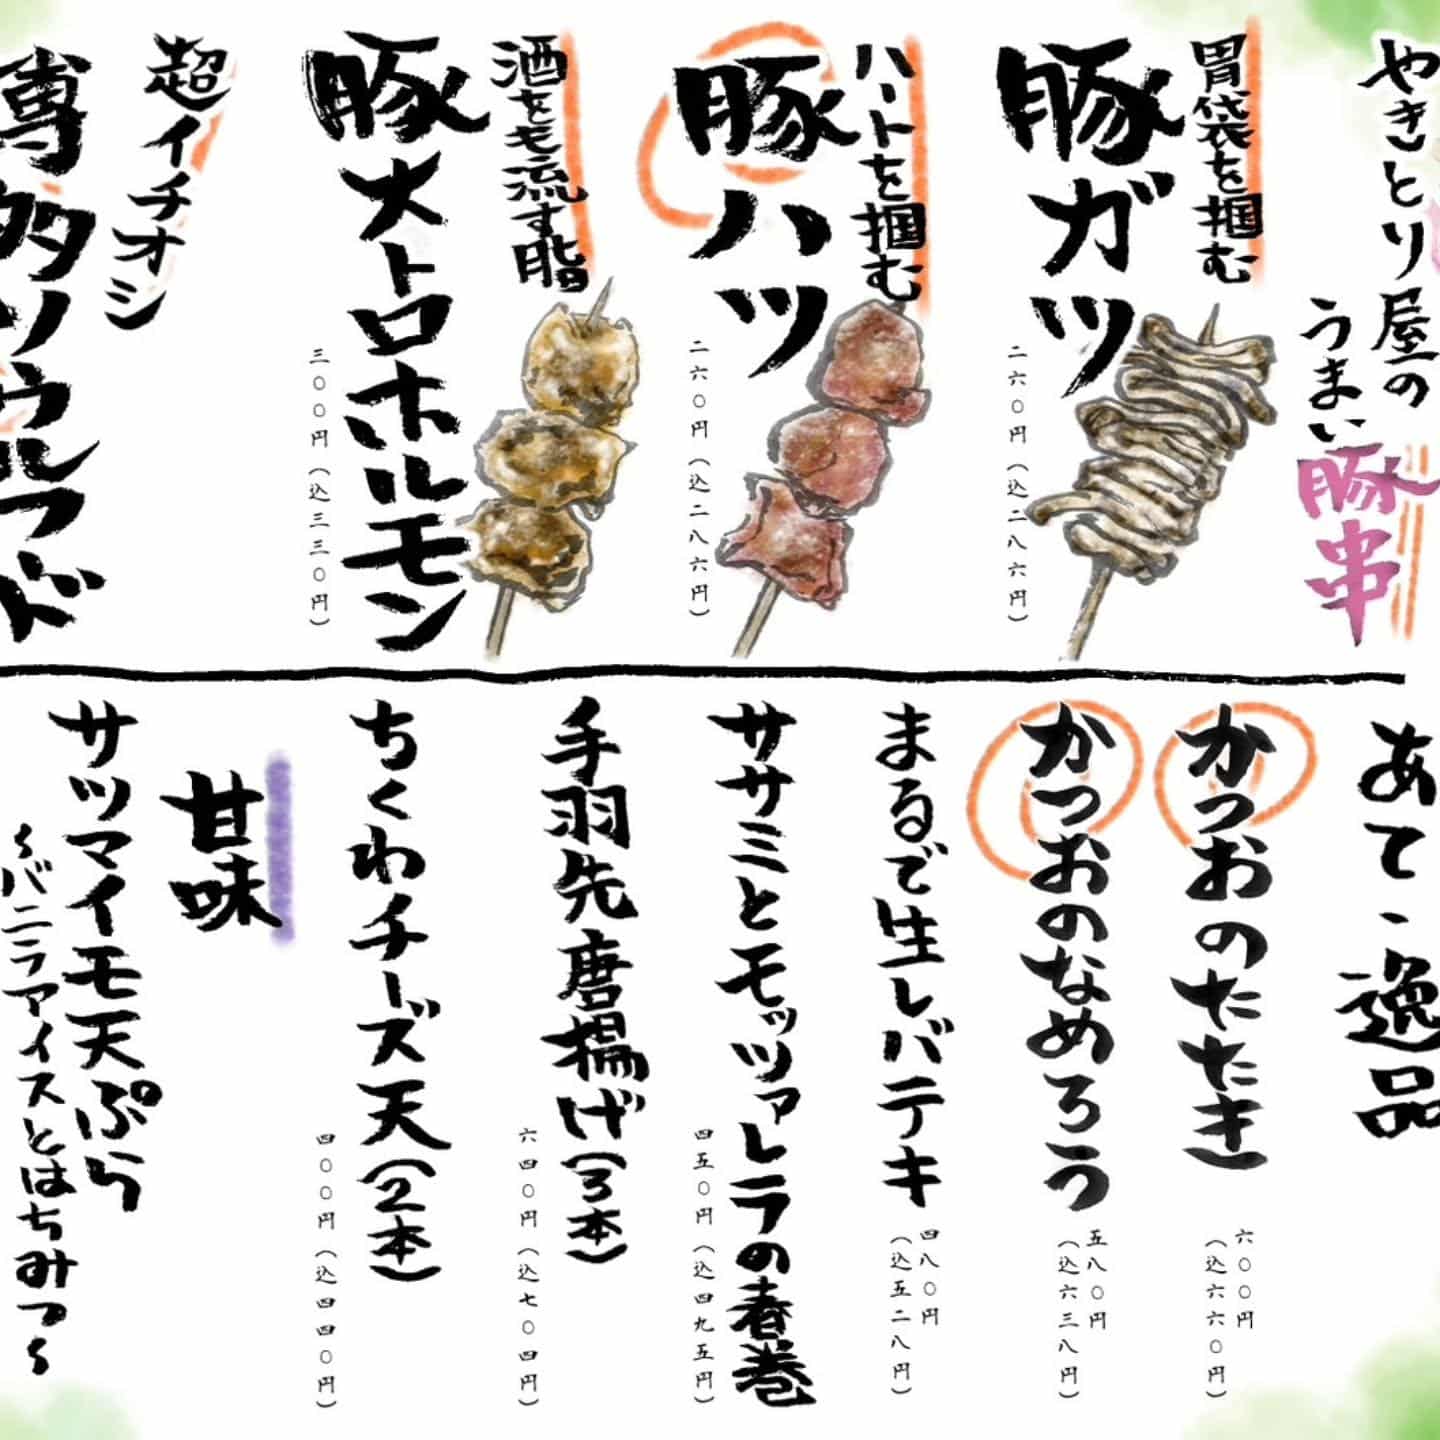 やきとり屋の
うまい豚串
胃袋を掴む
豚ガツ
二六〇円(込二八六円)
ハートを掴む
豚ハツ
二六〇円(込二八六円)
酒をも流す脂
豚大トロホルモン
三〇〇円(込三三〇円)
超イチオシ
博多ソウルフード
あて・逸品
かつおのたたき
六〇〇円
(込六六〇円)
かつおのなめろう
五八〇円
(込六三八円)
まるで生レバテキ
四八〇円
(込五二八円)
ササミとモッツァレラの春巻
四五〇円(込四九五円)
手羽先唐揚げ(3本)
六四〇円(込七〇四円)
ちくわチーズ天(2本)
四〇〇円(込四四〇円)
甘味
サツマイモ天ぷら
～バニラアイスとはちみつ～